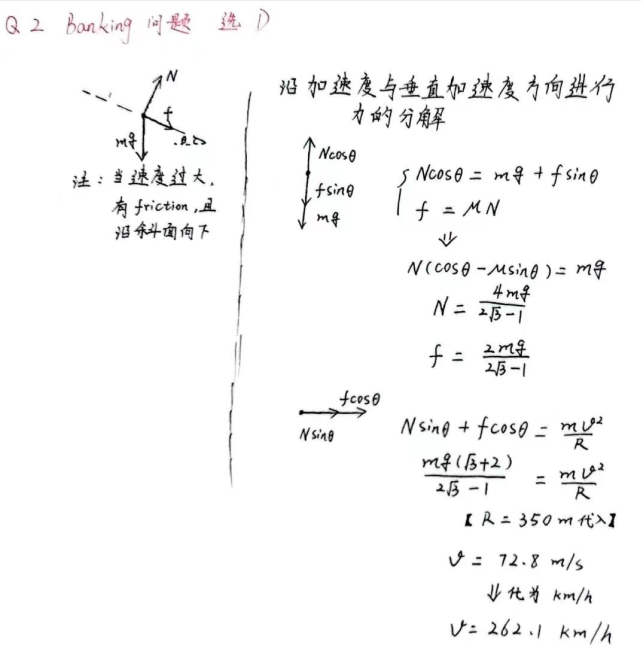 Q2 Banking 问题 选 D
N
f
mg
注：当速度过大，
有 friction，且
沿斜面向下
沿加速度与垂直加速度方向进行
力的分解
Ncosθ
fsinθ
mg
Ncosθ = mg + fsinθ
f = μN
⇓
N(cosθ - μsinθ) = mg
N = 4mg / 2√3-1
f = 2mg / 2√3-1
fcosθ
Nsinθ
Nsinθ + fcosθ = mv² / R
mg(√3+2) / 2√3-1 = mv² / R
【R = 350 m 代入】
v = 72.8 m/s
⇓ 化为 km/h
v = 262.1 km/h